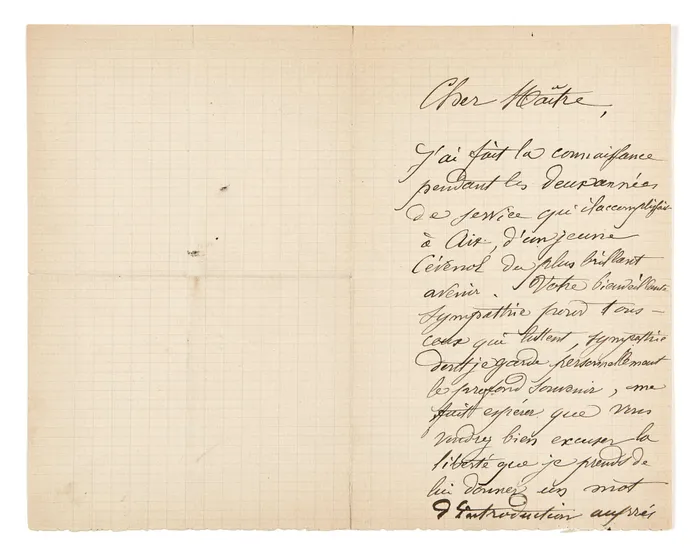 Cher Maître,
J'ai fait la connaissance
pendant les deux années
de service qu'il accomplissait
à Aix, d'un jeune
Cévenol du plus brillant
avenir. Votre bienveillante
sympathie pour tous
ceux qui luttent, sympathie
dont je garde personnellement
le profond souvenir, me
fait espérer que vous
voudrez bien excuser la
liberté que je prends de
lui donner un mot
d'introduction auprès